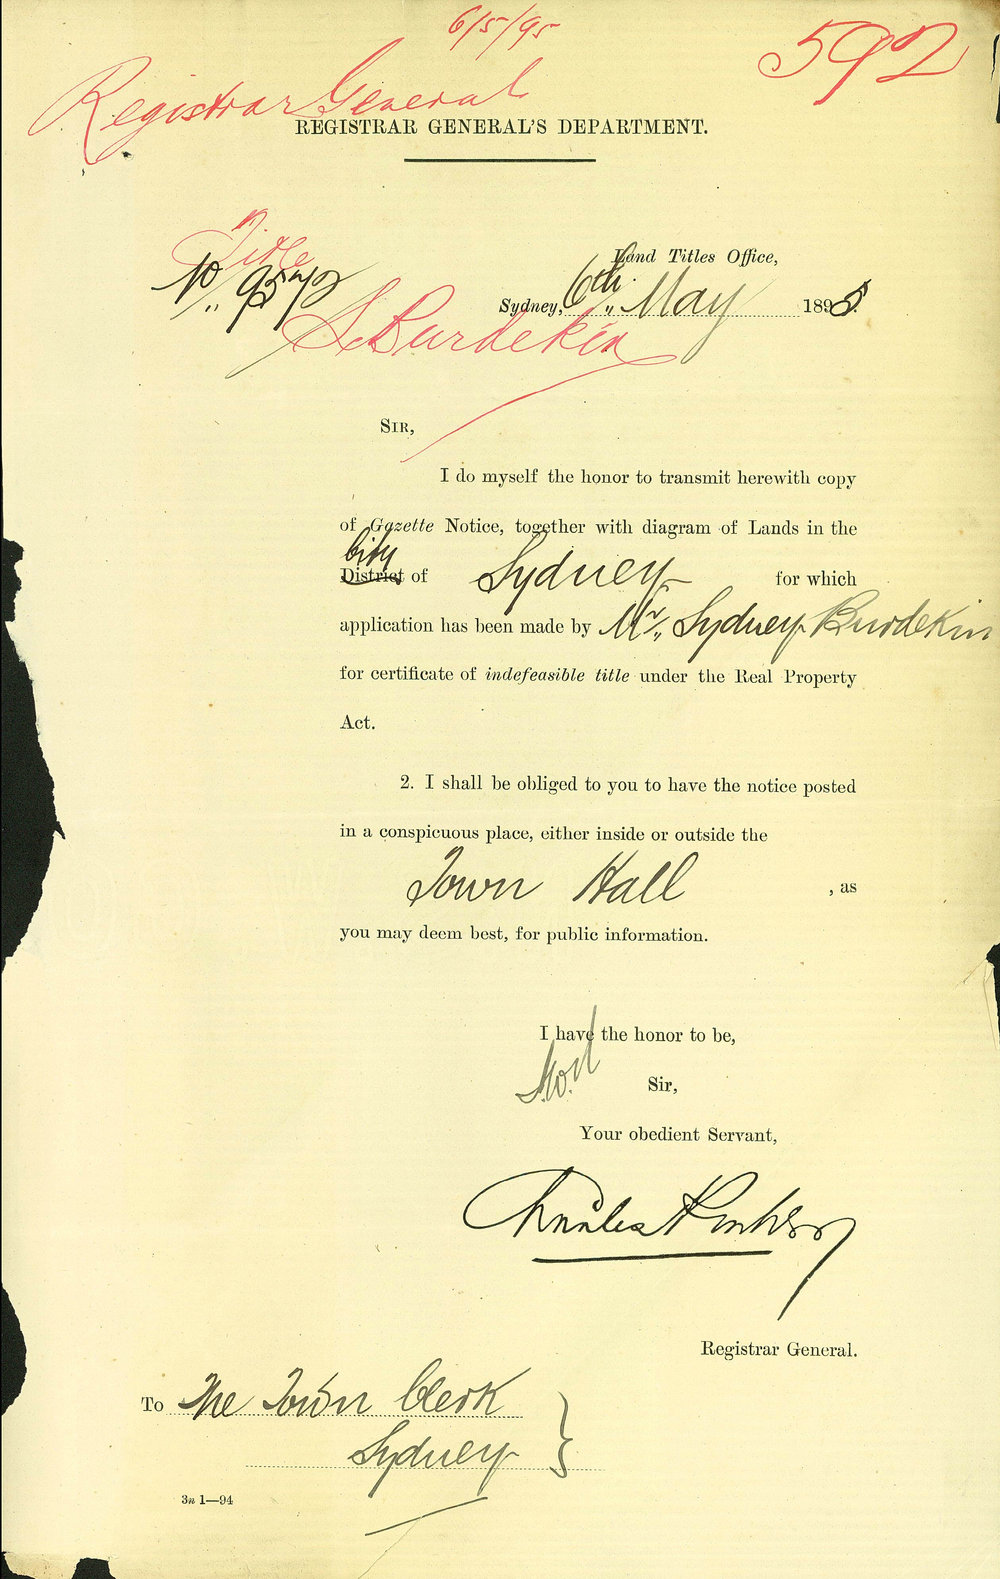 6/5/95
592
Registrar General
REGISTRAR GENERAL'S DEPARTMENT.
Title
No 9572
S. Burdekin
Land Titles Office,
Sydney, 6th May 1895.
SIR,
I do myself the honor to transmit herewith copy
of Gazette Notice, together with diagram of Lands in the
City
District of Sydney for which
application has been made by Mr. Sydney Burdekin
for certificate of indefeasible title under the Real Property
Act.
2. I shall be obliged to you to have the notice posted
in a conspicuous place, either inside or outside the
Town Hall , as
you may deem best, for public information.
I have the honor to be,
Sir,
Your obedient Servant,
Charles
Registrar General.
To The Town Clerk
Sydney
3n 1—94